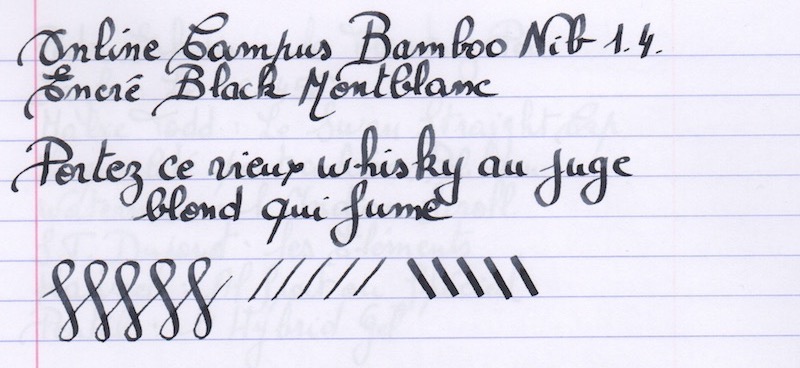 Online Campus Bamboo Nib 1.4.
Encre Black Montblanc
Portez ce vieux whisky au juge
blond qui fume